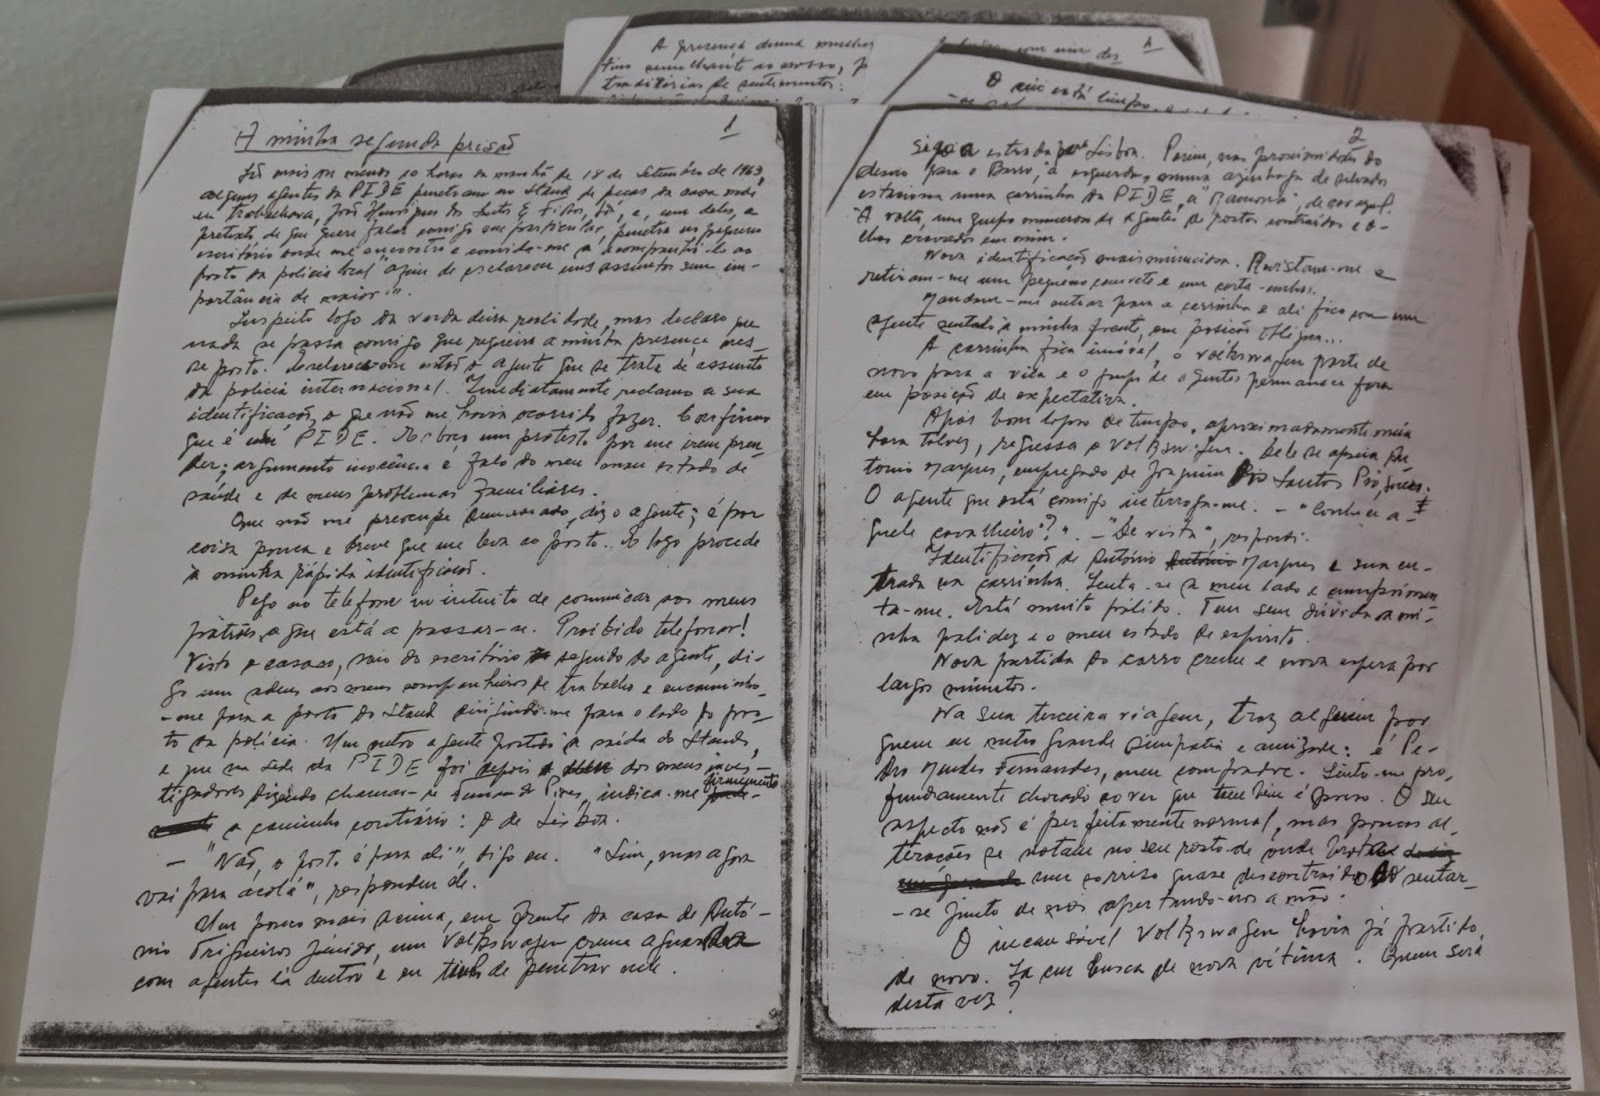 A presença duma mulher
tino semelhante ao nosso,
traditórias de sentimentos:
com um dos
O céu está limpo,
1
A minha segunda prisão
São mais ou menos 10 horas da manhã de 18 de Setembro de 1963,
alguns agentes da PIDE penetram no Stand de peças da casa onde
eu trabalhava, João Henriques dos Santos & Filhos, Ld., e, um deles, a
pretexto de que quere falar comigo em particular, penetra no pequeno
escritório onde me encontro e convida-me a acompanhá-lo ao
posto da polícia local "afim de esclarecer uns assuntos sem im-
portância de maior".
Suspeito logo da verdadeira realidade, mas declaro que
nada se passa comigo que requeira a minha presença nes-
se posto. Esclarece-me então o agente que se trata de assunto
da polícia internacional. Imediatamente reclamo a sua
identificação, o que não me havia ocorrido fazer. Confirmo
que é um PIDE. Esboço um protesto por me irem pren-
der; argumento inocência e falo do meu mau estado de
saúde e de meus problemas familiares.
Que não me preocupe demasiado, diz o agente; é por
coisa pouca e breve que me leva ao posto. E logo procede
à minha rápida identificação.
Pego no telefone no intuito de comunicar aos meus
patrões o que está a passar-se. Proibido telefonar!
Visto o casaco, saio do escritório seguido do agente, di-
go um adeus aos meus companheiros de trabalho e encaminho-
-me para a porta do Stand dirigindo-me para o lado do pos-
to da polícia. Um outro agente postado à saída do Stand,
e que na sede da PIDE foi depois dos meus inves-
tigadores dizendo chamar-se Pires, indica-me firmemente
o caminho contrário: o de Lisboa.
– "Não, o posto é para ali", digo eu. "Sim, mas agora
vai para acolá", respondeu ele.
Um pouco mais acima, em frente da casa de Antó-
nio Trigueiros Júnior, um Volkswagen creme aguardava
com agentes lá dentro e eu tinha de penetrar nele.
2
Sigo a estrada para Lisboa. Porém, nas proximidades do
desvio para o Barro, à esquerda, numa azinhaga de silvados
estaciona uma carrinha da PIDE, a "Ramona",
À volta, um grupo numeroso de agentes de rostos contraídos e o-
lhos cravados em mim.
Nova identificação mais minuciosa. Revistam-me e
retiram-me um pequeno canivete e um corta-unhas.
Mandam-me entrar para a carrinha e ali fico com um
agente sentado à minha frente, em posição oblíqua...
A carrinha fica imóvel, o Volkswagen parte de
novo para a vila e o grupo de agentes permanece fora
em posição de expectativa.
Após bom lapso de tempo, aproximadamente meia
hora talvez, regressa o Volkswagen. Dele se apeia An-
tónio Marques, empregado de Joaquim dos Santos Pió,
O agente que está comigo interroga-me. – "Conhece a-
quele cavalheiro?". – "De vista", respondi.
Identificação de António Marques e sua en-
trada na carrinha. Senta-se a meu lado e cumprimen-
ta-me. Está muito pálido. Tem sem dúvida a mi-
nha palidez e o meu estado de espírito.
Nova partida do carro creme e nova espera por
largos minutos.
Na sua terceira viagem, traz alguém por
quem eu nutro grande simpatia e amizade: é Pe-
dro Mendes Fernandes, meu compadre. Sinto-me pro-
fundamente chocado ao ver que também é preso. O seu
aspecto não é perfeitamente normal, mas poucas al-
terações se notam no seu rosto de onde brota
um sorriso quase descontraído ao sentar-
-se junto de nós apertando-nos a mão.
O incansável Volkswagen havia já partido
de novo. Ia em busca de nova vítima. Quem será
desta vez?